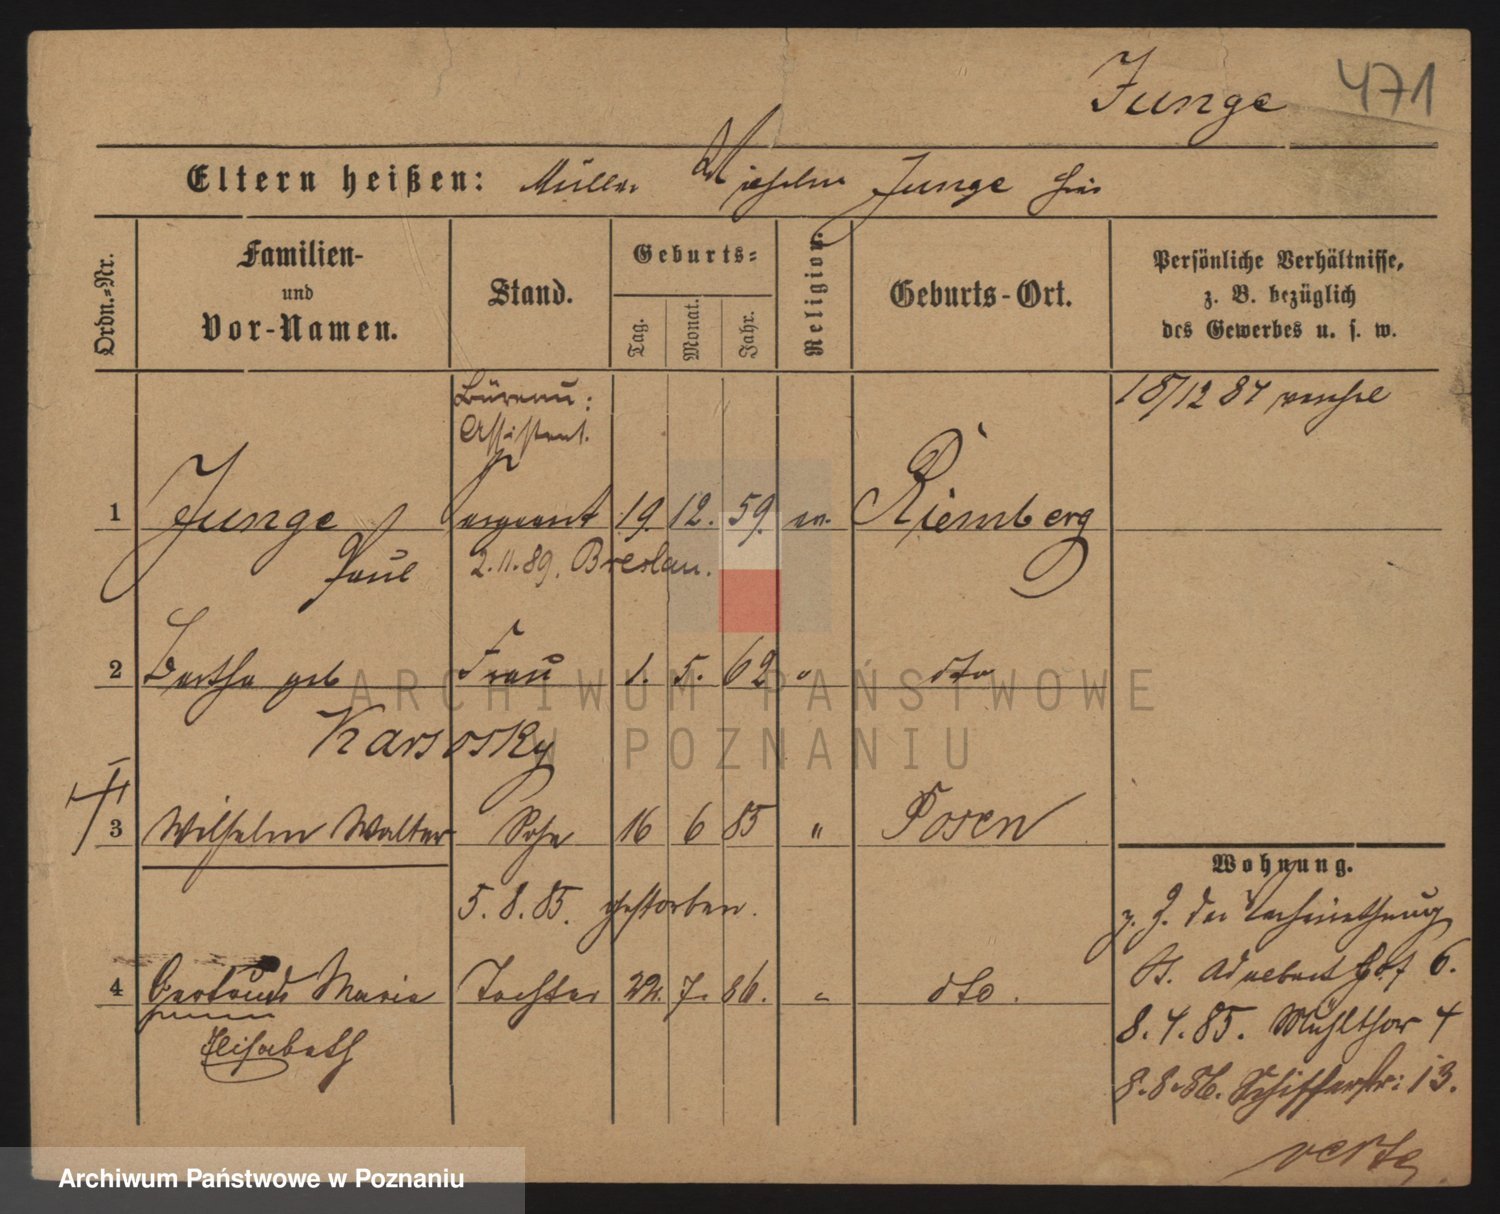 Junge 471
Eltern heißen: Müller Wilhelm Junge
Ordn.-Nr.
Familien-
und
Vor-Namen.
Stand.
Geburts-
Tag.
Monat.
Jahr.
Religion.
Geburts-Ort.
Persönliche Verhältnisse,
z. B. bezüglich
des Gewerbes u. s. w.
Büreau:
Assistent.
18/12 84
1 Junge Sergeant 19. 12. 59. ev. Riemberg
Paul 2.11.89. Breslau.
2 Bertha geb Frau 1. 5. 62 " dto
Karsosky
3 Wilhelm Walter Sohn 16 6 85 " Posen
5. 8. 85. gestorben.
4 Gertrud Marie Tochter 22. 7. 86. " dto.
Elisabeth
Wohnung.
z. Z. der
St. Adalbert 6.
8. 4. 85. Mühlthor 4
8. 8. 86. Schifferstr: 13.
verte
ARCHIWUM PAŃSTWOWE
W POZNANIU
Archiwum Państwowe w Poznaniu